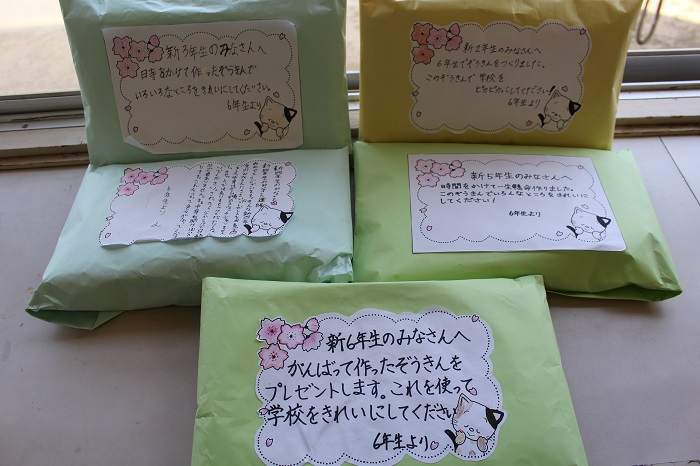 新3年生のみなさんへ
時をかけて作ったぞうきんで
いろいろなところをきれいにしてください。
6年生より
新2年生のみなさんへ
6年生でぞうきんをつくりました。
このぞうきんで学校を
ピカピカにしてください
6年生より
新5年生のみなさんへ
時間をかけて一生懸命作りました。
このぞうきんでいろんなところをきれいに
してください!
6年生より
新6年生のみなさんへ
がんばって作ったぞうきんを
プレゼントします。これを使って
学校をきれいにしてください
6年生より